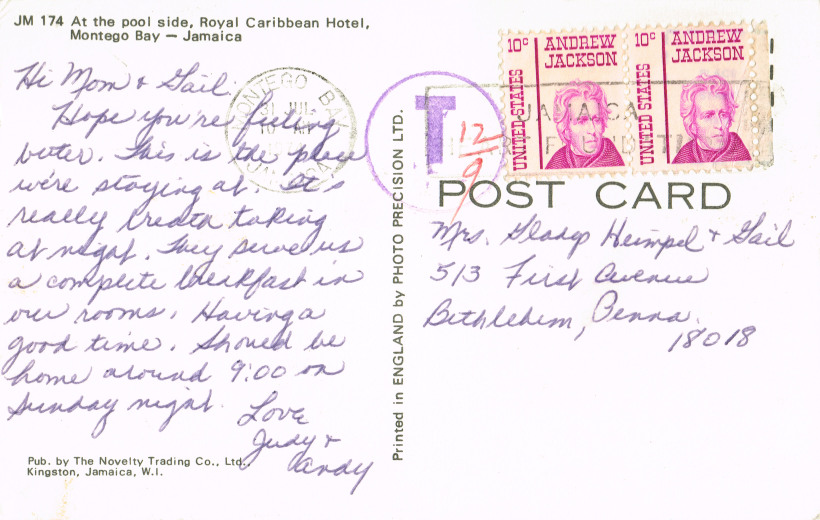 JM 174 At the pool side, Royal Caribbean Hotel,
Montego Bay — Jamaica
Hi Mom & Gail.
Hope you're feeling
better. This is the place
we're staying at. It's
really breath taking
at night. They serve us
a complete breakfast in
our rooms. Having a
good time. Should be
home around 9:00 on
Sunday night.
Love
Judy &
Andy
Pub. by The Novelty Trading Co., Ltd.,
Kingston, Jamaica, W.I.
Printed in ENGLAND by PHOTO PRECISION LTD.
MONTEGO BAY
JAMAICA
T
12/9
10c ANDREW
JACKSON
UNITED STATES
10c ANDREW
JACKSON
UNITED STATES
JAMAICA
POST CARD
Mrs. Gladys Heimpel & Gail
513 First Avenue
Bethlehem, Penna.
18018